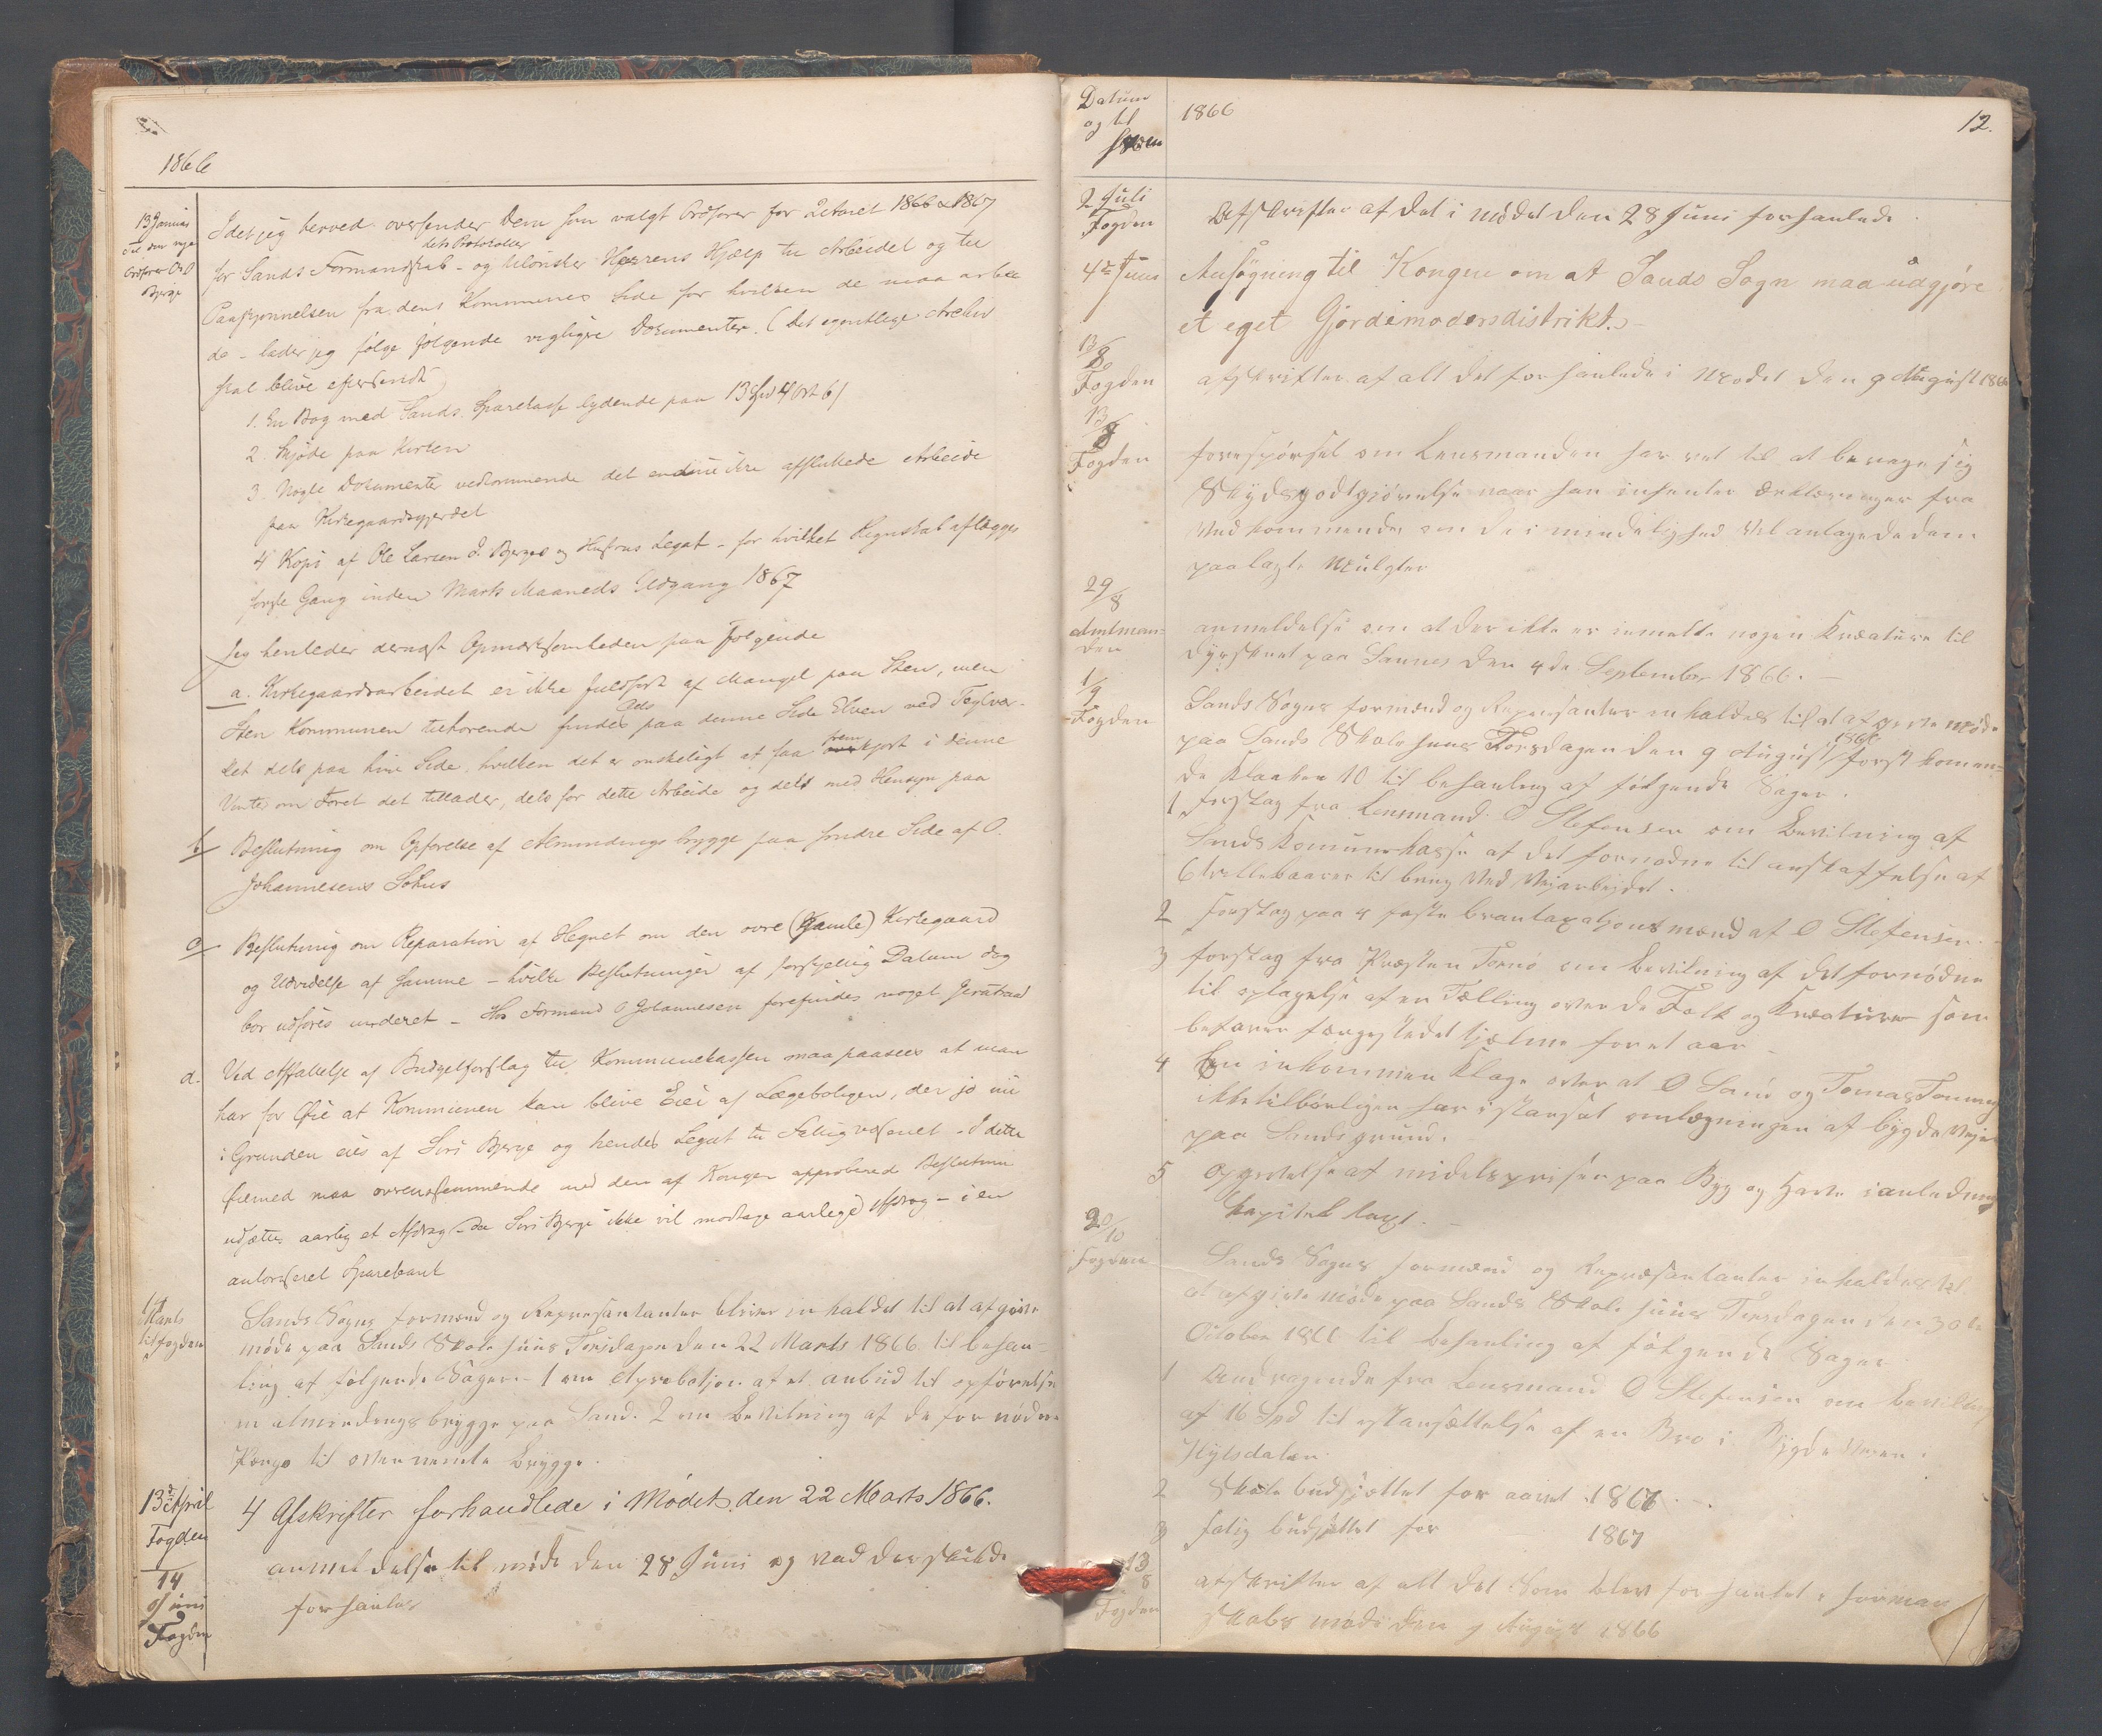 1866
13 Januar
Til den nye
Ordfører O. O.
Bjerge
Idet jeg herved oversender Dem som valgt Ordfører for 2 Aaret 1866 & 1867
dets Protokoller
for Sands Formandskab - og tilønsker Herrens Hjælp til Arbeidet og til
Paaskjønnelsen fra dens Kommunes Side for hvilken de maa arbei
de - lader jeg følge følgende vigtigere Dokumenter. (det egentlige Archiv
skal blive eftersendt)
1. En Bog med Sands Sparekasse lydende paa 13 Spd 4 Ort 6 /
2. Skjøde paa Kirken
3. Nogle Dokumenter vedkommende det endnu ikke afsluttede Arbeide
paa Kirkegaardsgjerdet
4 Kopi af Ole Larsen S. Bjerges og Hustrus Legat - for hvilket Regnskab aflægges
første Gang inden Marts Maaneds Udgang 1867
Jeg henleder dernæst Opmærksomheden paa Følgende
a. Kirkegaardsarbeidet er ikke fuldført af Mangel paa Sten, men
Sten Kommunen tilhørende findes dels paa denne Side Elven ved Teglver-
ket dels paa hin Side, hvilken det er ønskeligt at faa frem kjørt i denne
Vinter om Føret det tillader, dels for dette Arbeide og dels med Hensyn paa
b/ Beslutning om Opførelse af Almindings brygge paa søndre Side af O.
Johannesens Søhus
c/ Beslutning om Reparation af Hegnet om den øvre (Gamle) Kirkegaard
og Udvidelse af samme - hvilke Beslutninger af forskjellig Datum dog
bør udføres underet - Hos Formand O Johannesen forefindes noget Jerntraad
d. Ved Affattelse af Budgetforslag til Kommunekassen maa paasees at man
har for Øie at Kommunen kan blive Eier af Lægeboligen, der jo nu
i Grunden eies af Siri Bjerge og hendes Legat til Fattigvæsenet - I dette
Øiemed maa overensstemmende med den af Kongen approberede Beslutning
udsættes aarlig et Afdrag - da Siri Bjerge ikke vil modtage aarlige Afdrag - i en
autoriseret Sparebank
14
Marts
til fogden
Sands Sogns formænd og Repræsantanter bliver inkaldet til at afgive
møde paa Sands Skole huus Torsdagen den 22 Marts 1866 til behan-
ling af følgende Sager. - 1 om Aprobatjon af et anbud til opførelse
en almindings brygge paa Sand. 2 om Bevilning af de fornødne
Penge til ovennevnte Brygge.
13de April
Fogden
4 Afskrifter forhandlede i Mødet den 22 Marts 1866.
14
Juni
Fogden
anmeldelse til møde den 28 Juni og vad der skulde
forhanles
Datum
og til
hvem
1866
12.
2 Juli
Fogden
Afskrifter af det i mødet den 28 Juni forhanlede.
4de Juni
Ansøgning til Kongen om at Sands Sogn maa udgjøre
et eget Gjordemodersdistrikt. -
13/8
Fogden
afskrifter af alt det forhanlede i Mødet den 9 August 1866
13/8
Fogden
forespørsel om Lensmanden har ret til at berege sig
Skydsgodtgjørelse naar han inhenter Erklæringer fra
Vedkommende om de i mindelighed Vil antage de dem
paalagte Mulgter
29/8
Amtman-
den
anmeldelse om at der ikke er inmelte nogen Kreature til
Dyrskuet paa Sannes den 4de September 1866. -
1/9
Fogden
Sands Sogns formænd og Repræsantanter inkaldes til at afgive møde
paa Sands Skole huus Torsdagen den 9 August 1866 først kommen-
de Klokken 10 til behanling af følgende Sager.
1 forslag fra Lensmand O Stefensen om Bevilning af
Sands Komunekasse af det fornødne til anskaffelse af
6 trillebaarer til brug Ved Veiarbeidet.
2 forslag paa 4 faste brantaxasjons mænd af O Stefensen
3 forslag fra Præsten Tornø om Bevilning af det fornødne
til optagelse af en Tælling over de Folk og Kreature som
befarer færgestedet Hjælme for et aar
4 En inkommen Klage over at O Sand og Tomas Tommeg
ikke tilbørligen har istanset omlægningen af bygde Veje
paa Sands grund.
5 opgivelse af midelsprisen paa Byg og Havre i anledning
kapitels taxt. -
20/10
Fogden
Sands Sogns formænd og Repræsantanter inkaldes til
at afgive møde paa Sands Skole huus Torsdagen den 30te
October 1866 til behanling af følgende Sager
1 Andragende fra Lensmand O Stefensen om Bevilling
af 16 Spd til istansættelse af en Bro i Bygdeveien i
Hylsdalen
2 Skole budsjettet for aaret 1866. -
3 fatig budsjettet for 1867
13/8
Fogden
afskrifter af alt det som blev forhanlet i forman
skabs møde den 9 August 1866